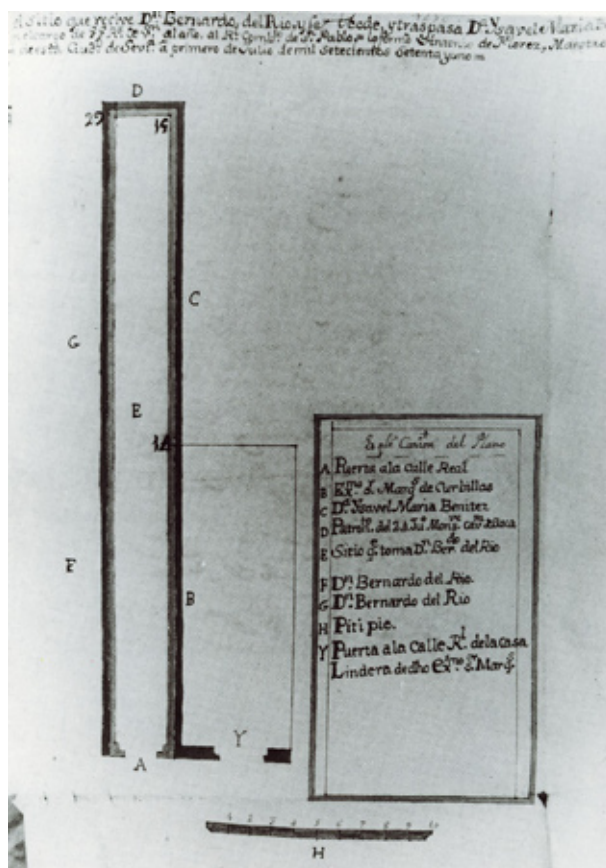 el Sitio que recive Dn. Bernardo, del Rio, y ser. Vbode, y traspasa Da. Ysavele Maria
al año, al Rl. Combto. de Sn. Pablo de Xerez, Maestro
de esta Ciud. de Sevª. a primero de Julio de mil setecientos setenta y uno =
D
29 15
C
G
E
14
F
B
Y
A
Explicacion del Plano
A Puerta a la Calle Real
B Exmo. Sr. Marqs. de Curbillas
C Da. Ysavel Maria Benitez
D Patrto. del
E Sitio qe. toma Dn. Berdo. del Rio
F Dn. Bernardo del Rio.
G Dn. Bernardo del Rio
H Piti pie.
Y Puerta a la Calle Rl. de la casa
Lindera de dho Exmo. Sr. Marqs.
1 2 3 4 5 6 7 8 9 10
H